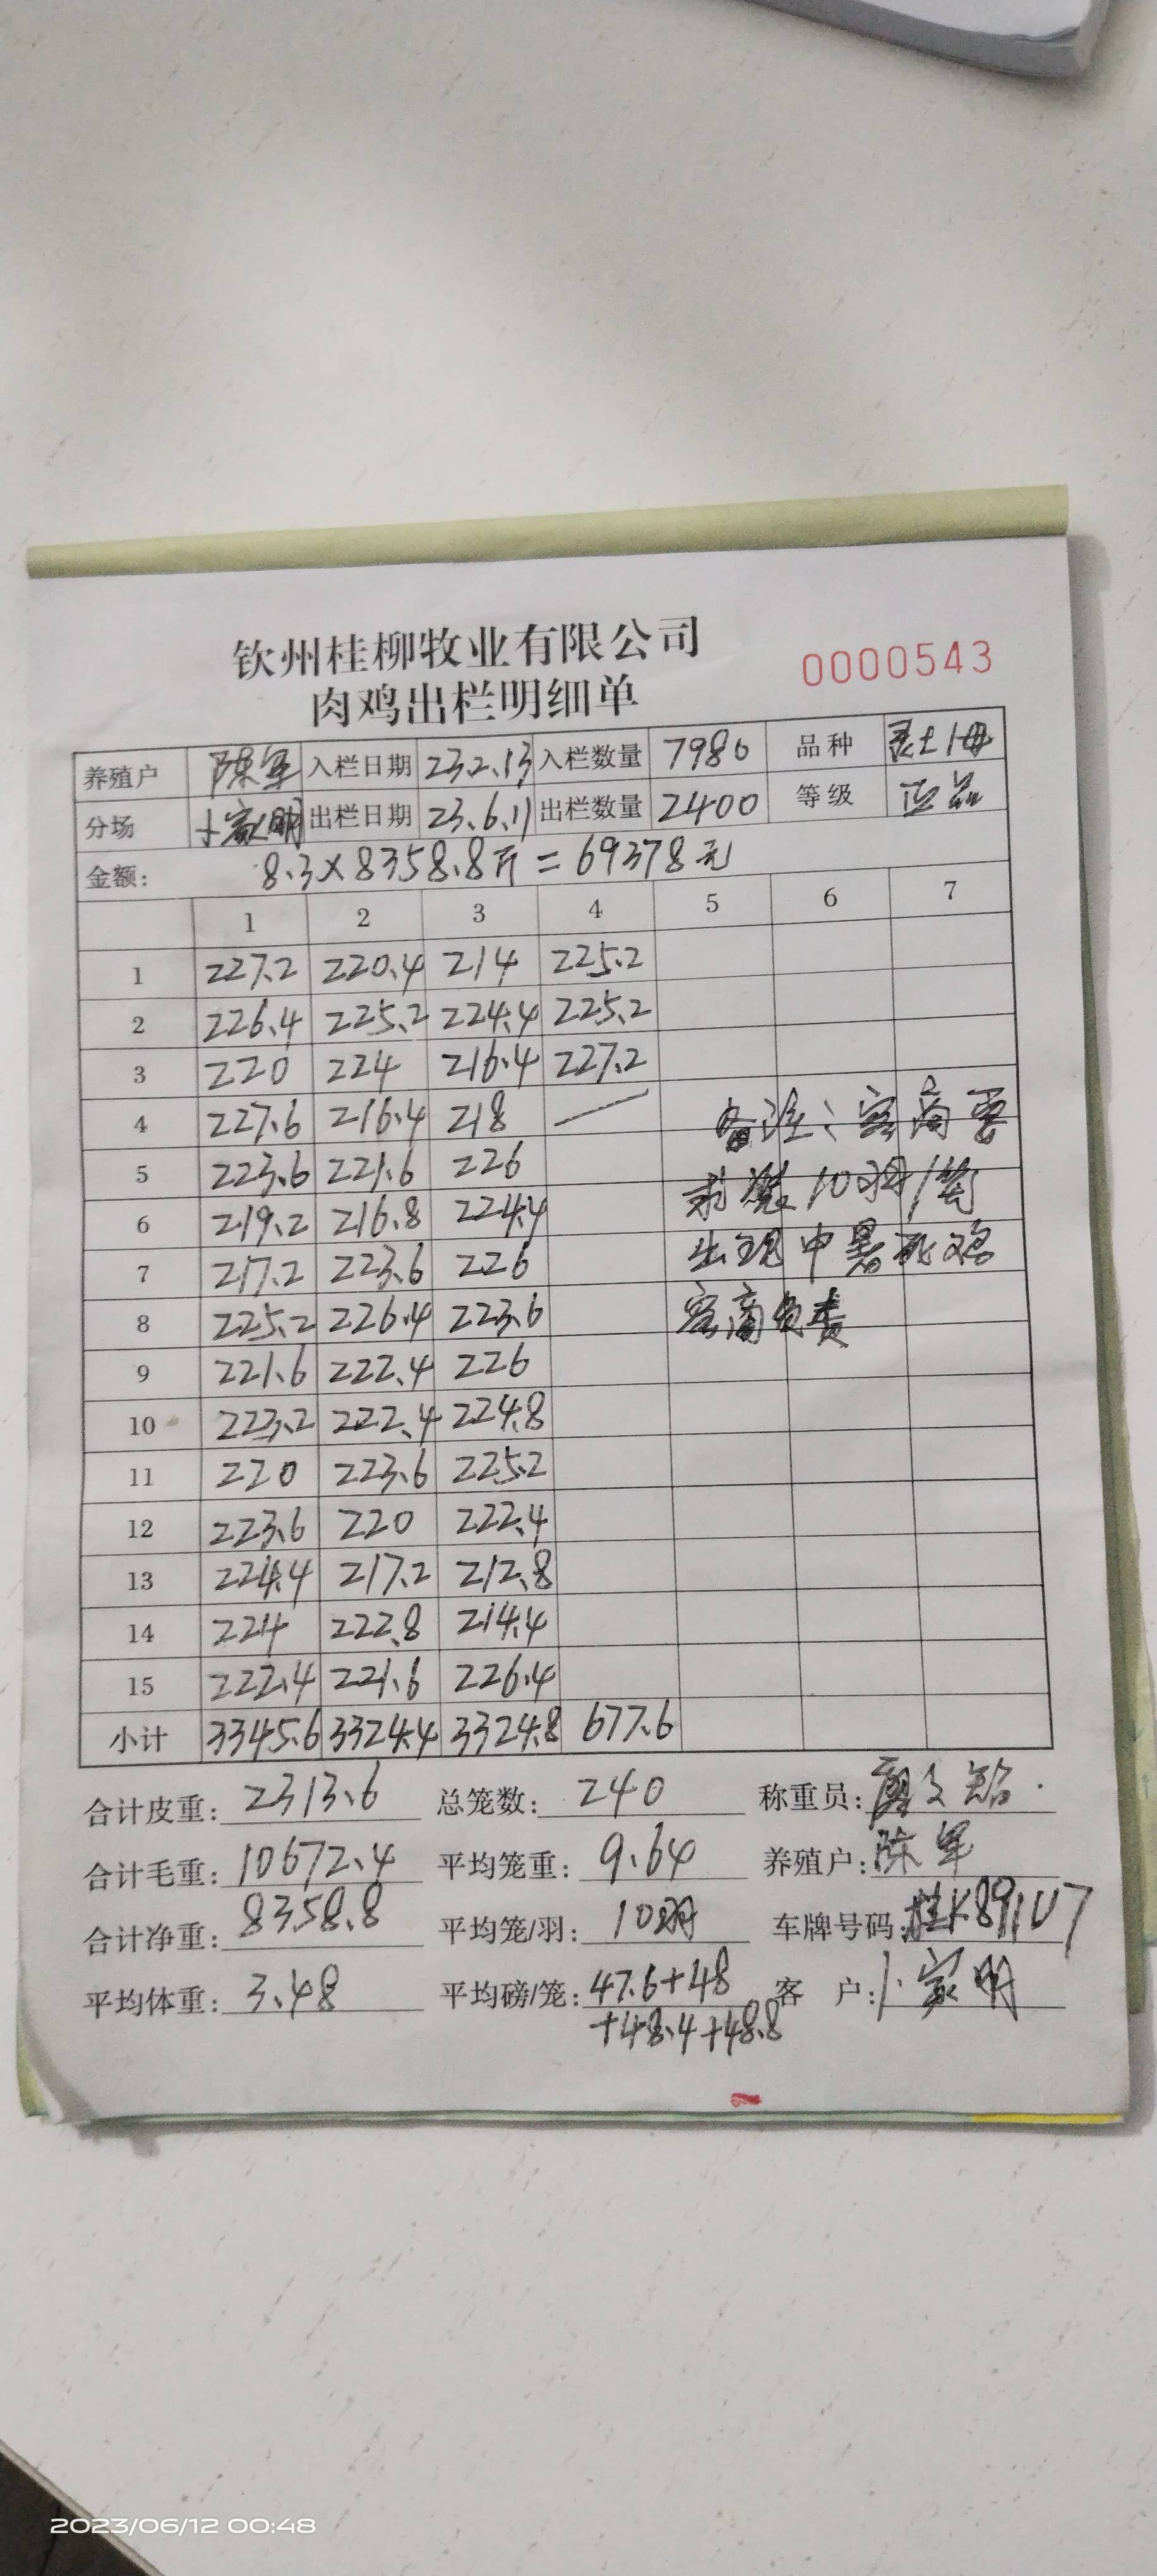 钦州桂柳牧业有限公司
0000543
肉鸡出栏明细单
养殖户 陈军 入栏日期 23.2.13 入栏数量 7980 品种 灵土1母
分场 小家明 出栏日期 23.6.11 出栏数量 2400 等级 正品
金额: 8.3×8358.8斤=69378元
1 2 3 4 5 6 7
1 227.2 220.4 214 225.2
2 226.4 225.2 224.4 225.2
3 220 224 216.4 227.2
4 227.6 216.4 218
5 223.6 221.6 226
6 219.2 216.8 224.4
7 217.2 223.6 226
8 225.2 226.4 223.6
9 221.6 222.4 226
10 223.2 222.4 224.8
11 220 223.6 225.2
12 223.6 220 222.4
13 224.4 217.2 212.8
14 224 222.8 214.4
15 222.4 221.6 226.4
小计 3345.6 3324.4 3324.8 677.6
备注:客商要
求装10羽/笼
出现中暑死鸡
客商负责
合计皮重: 2313.6 总笼数: 240 称重员:
合计毛重: 10672.4 平均笼重: 9.64 养殖户: 陈军
合计净重: 8358.8 平均笼/羽: 10羽 车牌号码: 桂K891U7
平均体重: 3.48 平均磅/笼: 47.6+48 客户: 小家明
+48.4+48.8
2023/06/12 00:48